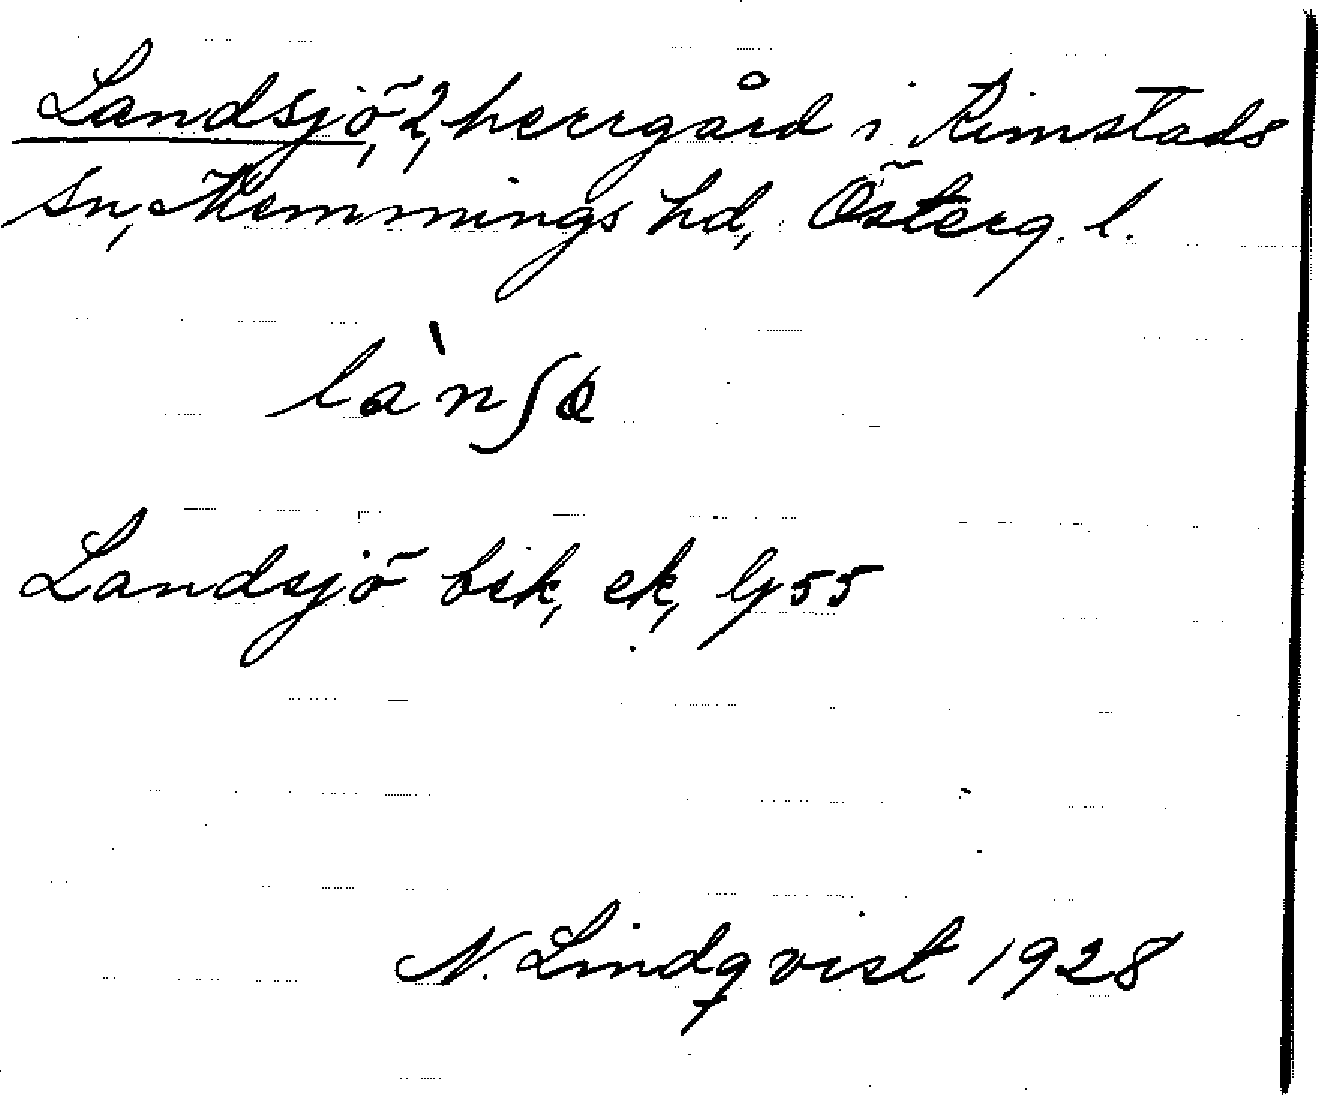 Landsjö, 2, herrgård i Rimstads
sn, Memmings hd, Österg. l.
lànʃø
Landsjö bsk, ek, Ig 55
N. Lindqvist 1928